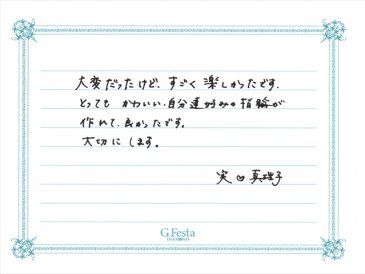 大変だったけど、すごく楽しかったです。
とっても かわいい、自分達好みの指輪が
作れて、良かったです。
大切にします。
実 ♡ 真理子
G.Festa
DIAMOND